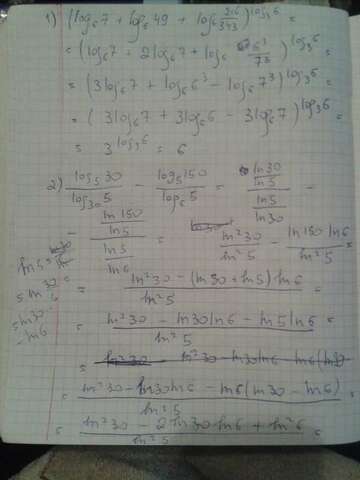 1) (log₆7 + log₆49 + log₆ 216/343)^log₃6 =
= (log₆7 + 2log₆7 + log₆ 6³/7³)^log₃6 =
= (3log₆7 + log₆6³ - log₆7³)^log₃6 =
= (3log₆7 + 3log₆6 - 3log₆7)^log₃6 =
= 3^log₃6 = 6
2) log₅30/log₃₀5 - log₅150/log₆5 = (ln30/ln5)/(ln5/ln30) -
- (ln150/ln5)/(ln5/ln6) = ln²30/ln²5 - ln150 ln6/ln²5 =
= (ln²30 - (ln30 + ln5) ln6)/ln²5 =
= (ln²30 - ln30 ln6 - ln5 ln6)/ln²5 =
= (ln²30 - ln30 ln6 - ln6(ln30 - ln6))/ln²5 =
= (ln²30 - 2ln30 ln6 + ln²6)/ln²5 =